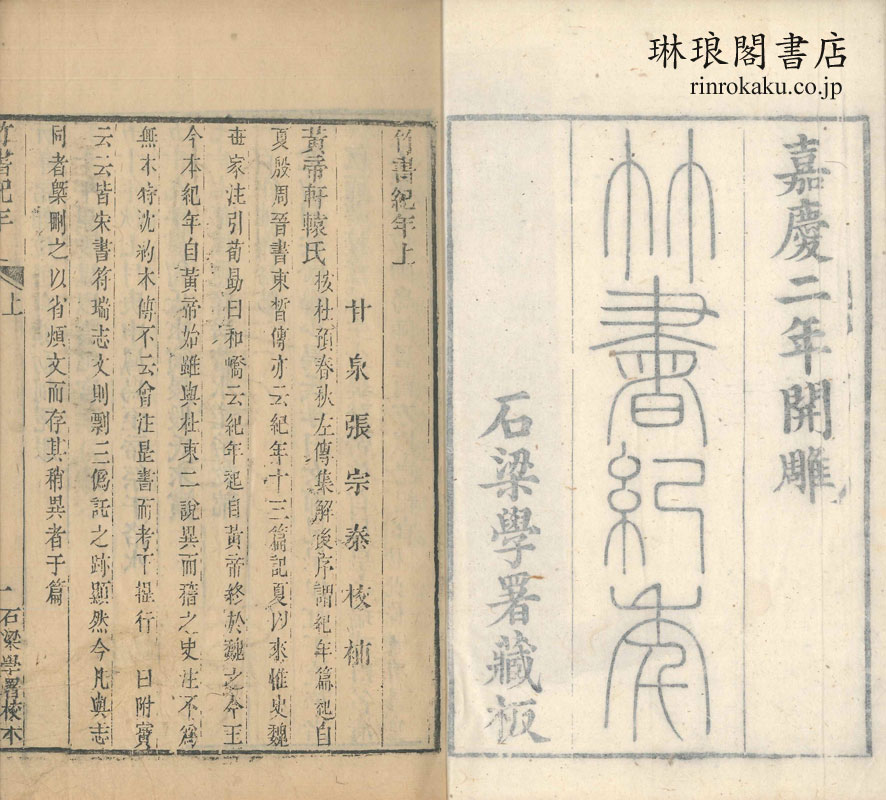 琳琅閣書店
rinrokaku.co.jp
嘉慶二年開雕
竹書紀年
石梁學署藏板
竹書紀年上
甘泉張宗泰校補
黃帝軒轅氏 按杜預春秋左傳集解後序謂紀年篇起自
夏殷周晉書束晳傳亦云紀年十三篇記夏以來惟史魏
世家注引荀勗曰和嶠云紀年起自黃帝終於魏之今王
今本紀年自黃帝始雖與杜束二說異而稽之史注不爲
無本特沈約本傳不云曾注是書而考下提行 曰附寶
云云皆宋書符瑞志文則剽二僞託之跡顯然今凡與志
同者槩刪之以省煩文而存其稍異者于篇
竹書紀年 上 一 石梁學署校本